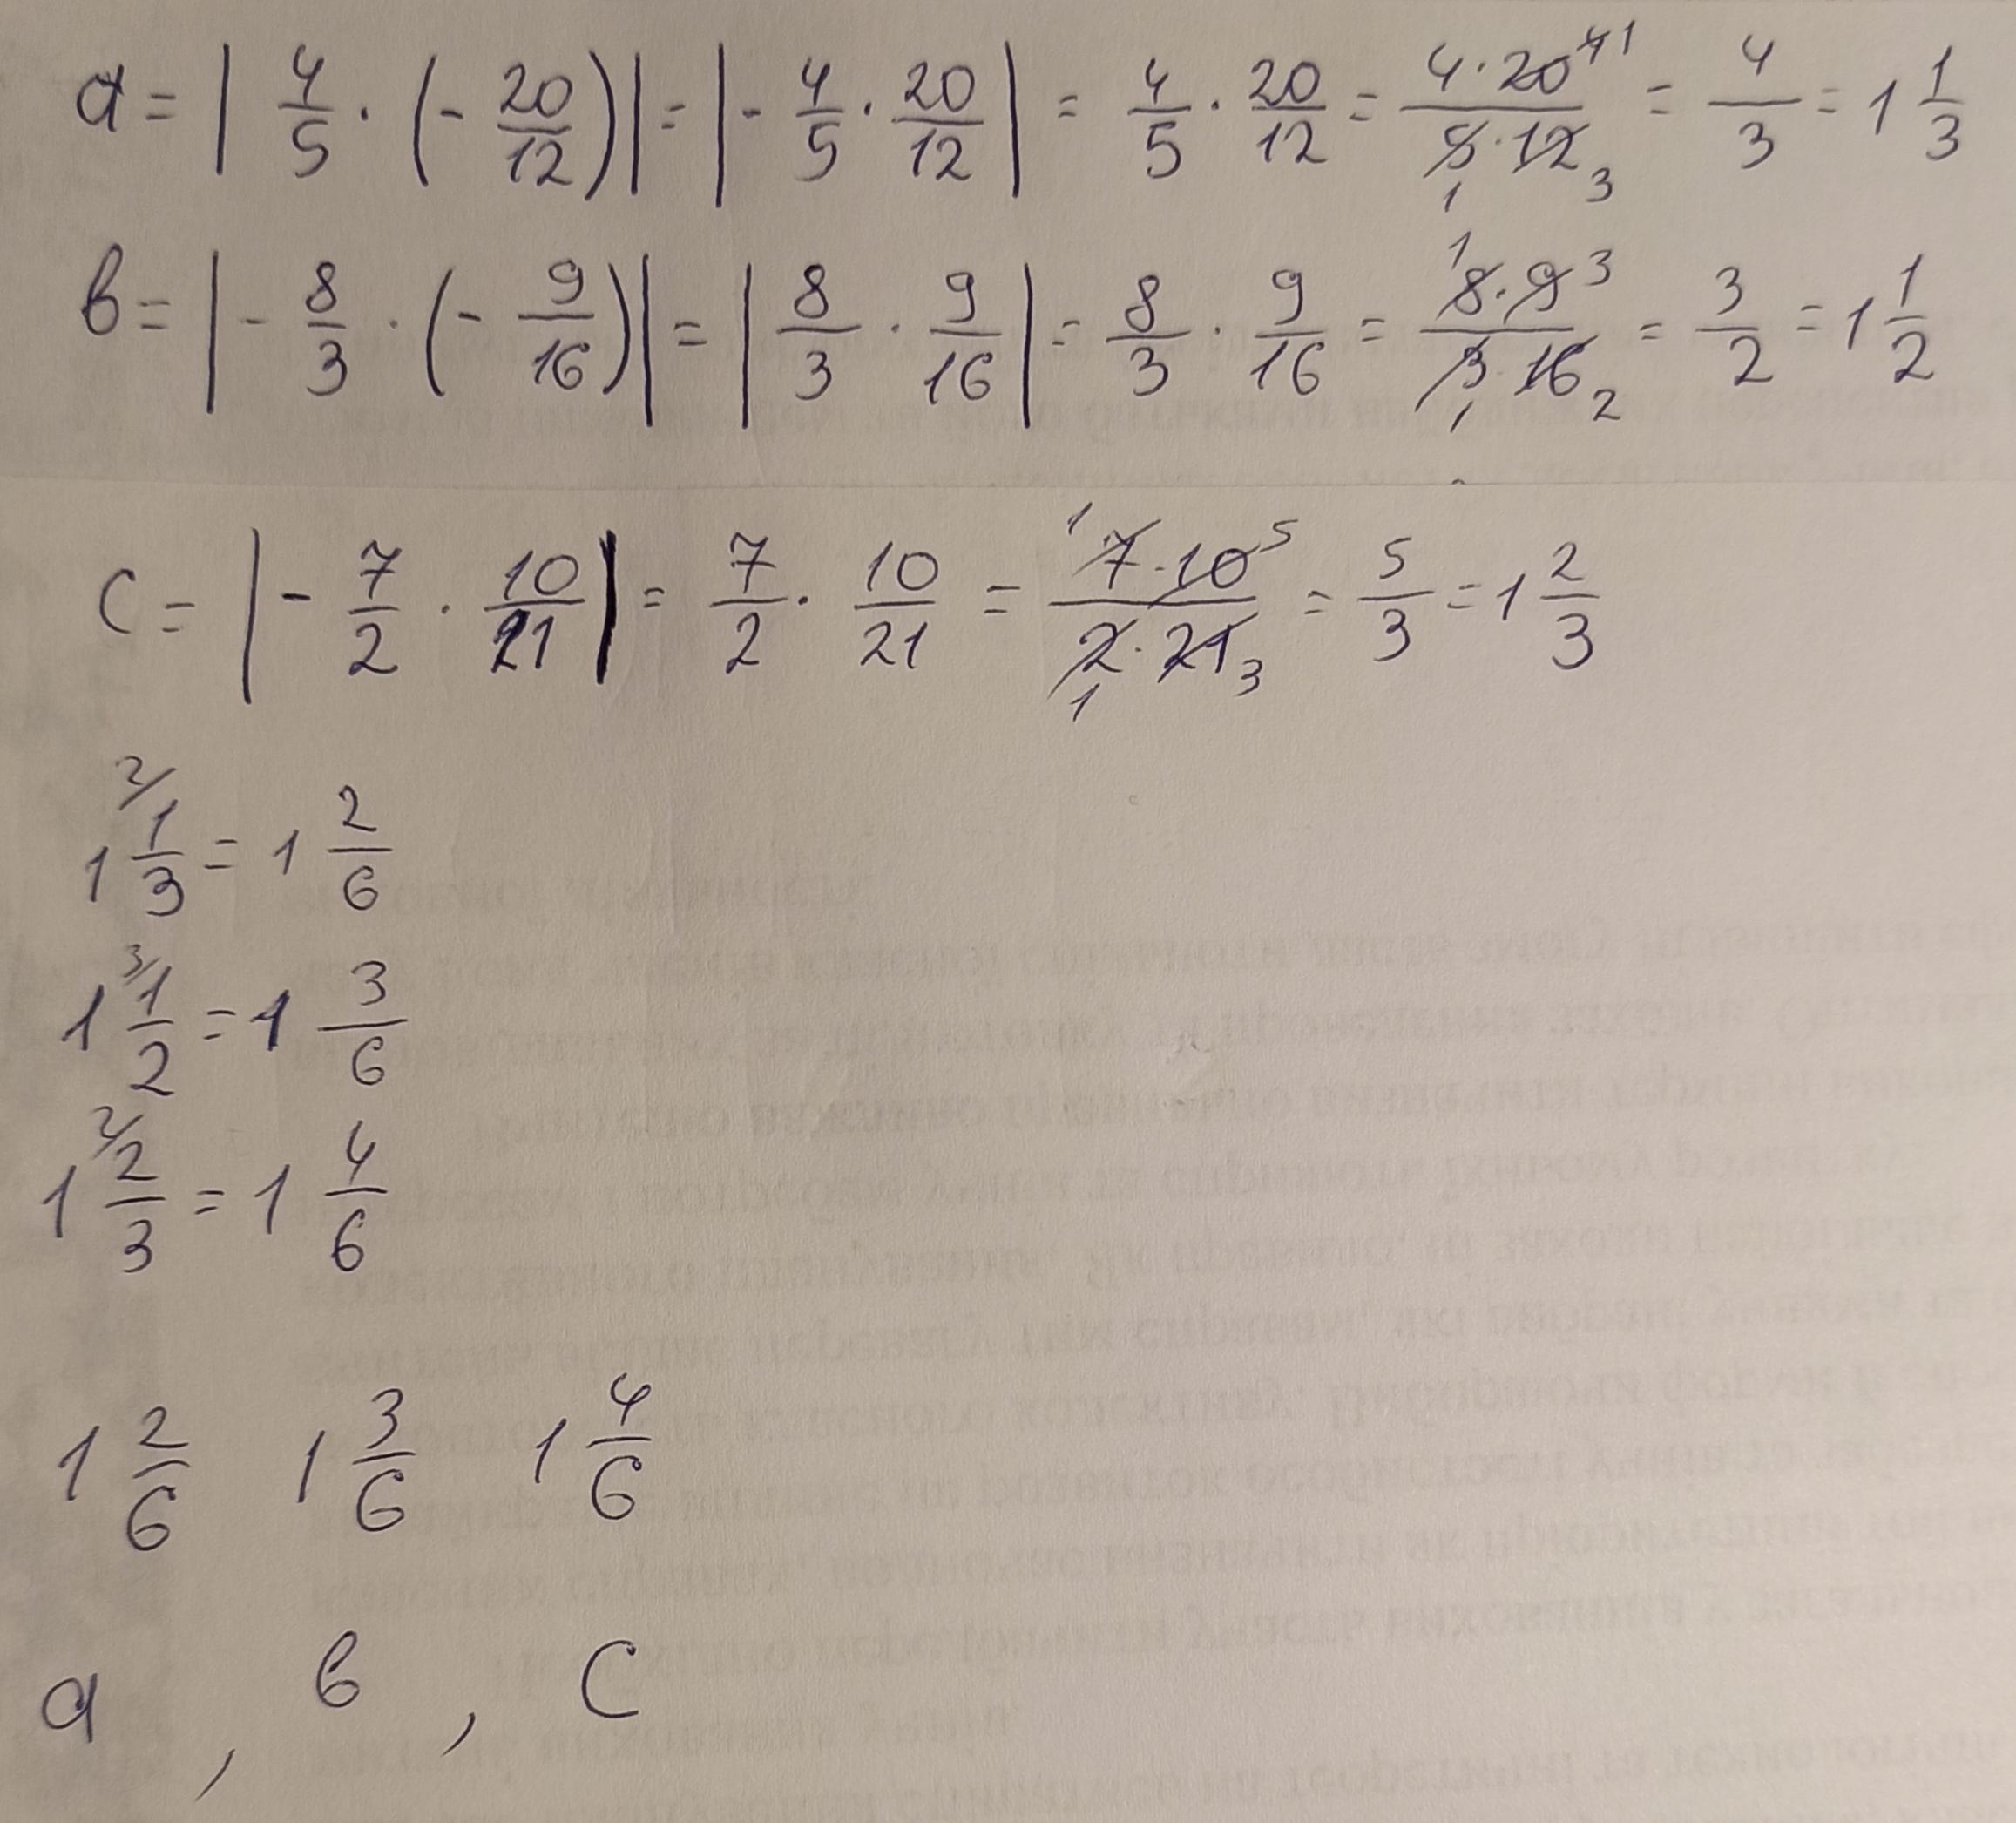 a = | 4/5 · (- 20/12) | = | - 4/5 · 20/12 | = 4/5 · 20/12 = 4 · 20 4 1 / 5 · 12 1 3 = 4/3 = 1 1/3
в = | - 8/3 · (- 9/16) | = | 8/3 · 9/16 | = 8/3 · 9/16 = 1 8 · 9 3 / 3 · 16 1 2 = 3/2 = 1 1/2
c = | - 7/2 · 10/21 | = 7/2 · 10/21 = 1 7 · 10 5 / 2 · 21 1 3 = 5/3 = 1 2/3
2/ 1 1/3 = 1 2/6
3/ 1 1/2 = 1 3/6
2/ 1 2/3 = 1 4/6
1 2/6 1 3/6 1 4/6
a , в , c